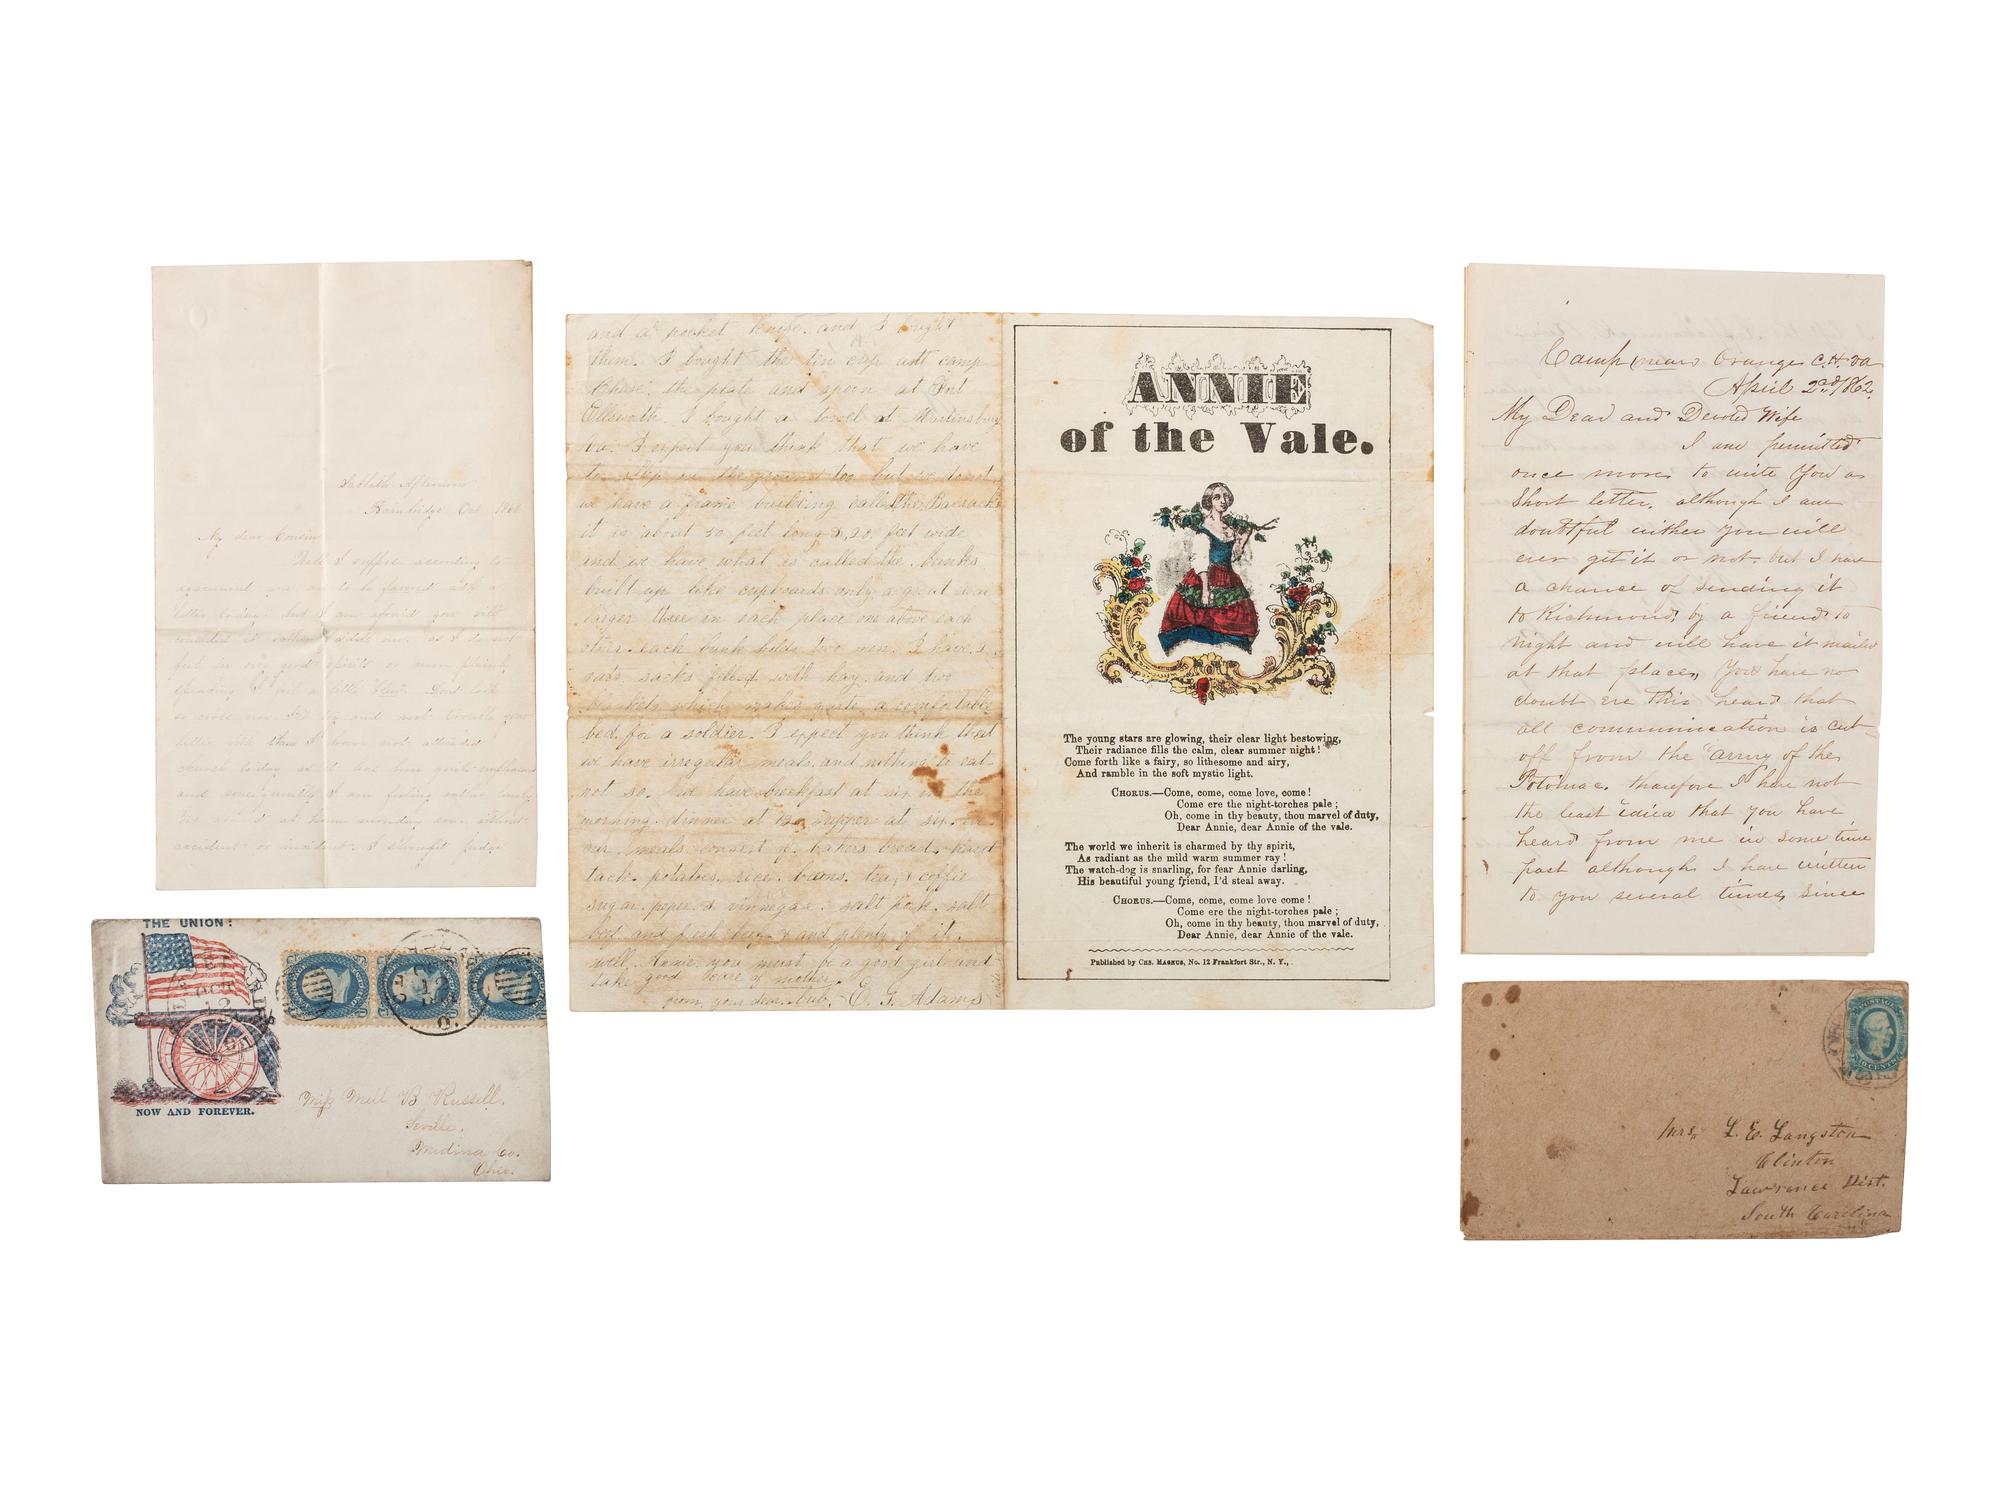 Sabbath Afternoon
Bainbridge Oct 1861
My dear Cousin
Well I suppose according to
agreement you are to be favored with a
letter today, but I am afraid you will
consider it rather a dull one, as I do not
feel in very good spirits or more plainly
speaking I feel a little "blue". Dont look
so cross now and not trouble you
church today as it has been quite unpleasant
and consequently I am feeling rather lonely
at home monday eve. without
accident or incident. I
THE UNION:
NOW AND FOREVER.
Miss Mell B Russell.
Seville.
Medina Co.
Ohio.
and a pocket knife. and I bought
them. I bought the tin cup att camp
Chase. the plate and spoon at Fort
Ellsworth. I bought a towel at Martinsburg
va. I expect you think that we have
to sleep on the ground too but we do not
we have a frame building called the Barracks
it is about 50 feet long & 20 feet wide
and we have what is called the bunks
built up like cupboards only a great deal
larger three in each place one above each
other. each bunk holds two men. I have 2
oats sacks filled with hay. and two
blankets which makes quite a comfortable
bed for a soldier. I expect you think that
we have irregular meals. and nothing to eat
not so. we have breakfast at six in the
morning. dinner at 12. supper at six.
our meals consist of bakers bread. hard
tack. potatoes. rice. beans. tea & coffie
sugar. peper. & vinnegar. salt pork. salt
beef. and fresh beef. & and plenty of it.
well. Annie you must be a good girl and
take good care of mother
from your dear bub. E. G. Adams
ANNIE
of the Vale.
The young stars are glowing, their clear light bestowing,
Their radiance fills the calm, clear summer night!
Come forth like a fairy, so lithesome and airy,
And ramble in the soft mystic light.
CHORUS.—Come, come, come love, come!
Come ere the night-torches pale;
Oh, come in thy beauty, thou marvel of duty,
Dear Annie, dear Annie of the vale.
The world we inherit is charmed by thy spirit,
As radiant as the mild warm summer ray!
The watch-dog is snarling, for fear Annie darling,
His beautiful young friend, I'd steal away.
CHORUS.—Come, come, come love come!
Come ere the night-torches pale;
Oh, come in thy beauty, thou marvel of duty,
Dear Annie, dear Annie of the vale.
Published by CHS. MAGNUS, No. 12 Frankfort Str., N. Y.,
Camp near Orange C.H. Va
April 2nd/1862,
My Dear and Devoted Wife
I am permitted
once more to write You a
Short letter, although I am
doubtful wither you will
ever get it or not. but I have
a chance of sending it
to Richmond, by a friend to
night and will have it mailed
at that place, You have no
doubt ere This heard that
all communication is cut
off from the "army of the
Potomac, therefore I have not
the least idiea that you have
heard from me in some time
past although I have written
to you several times, Since
Mrs, L. E. Langston
Clinton
Lawrence Dist.
South Carolina